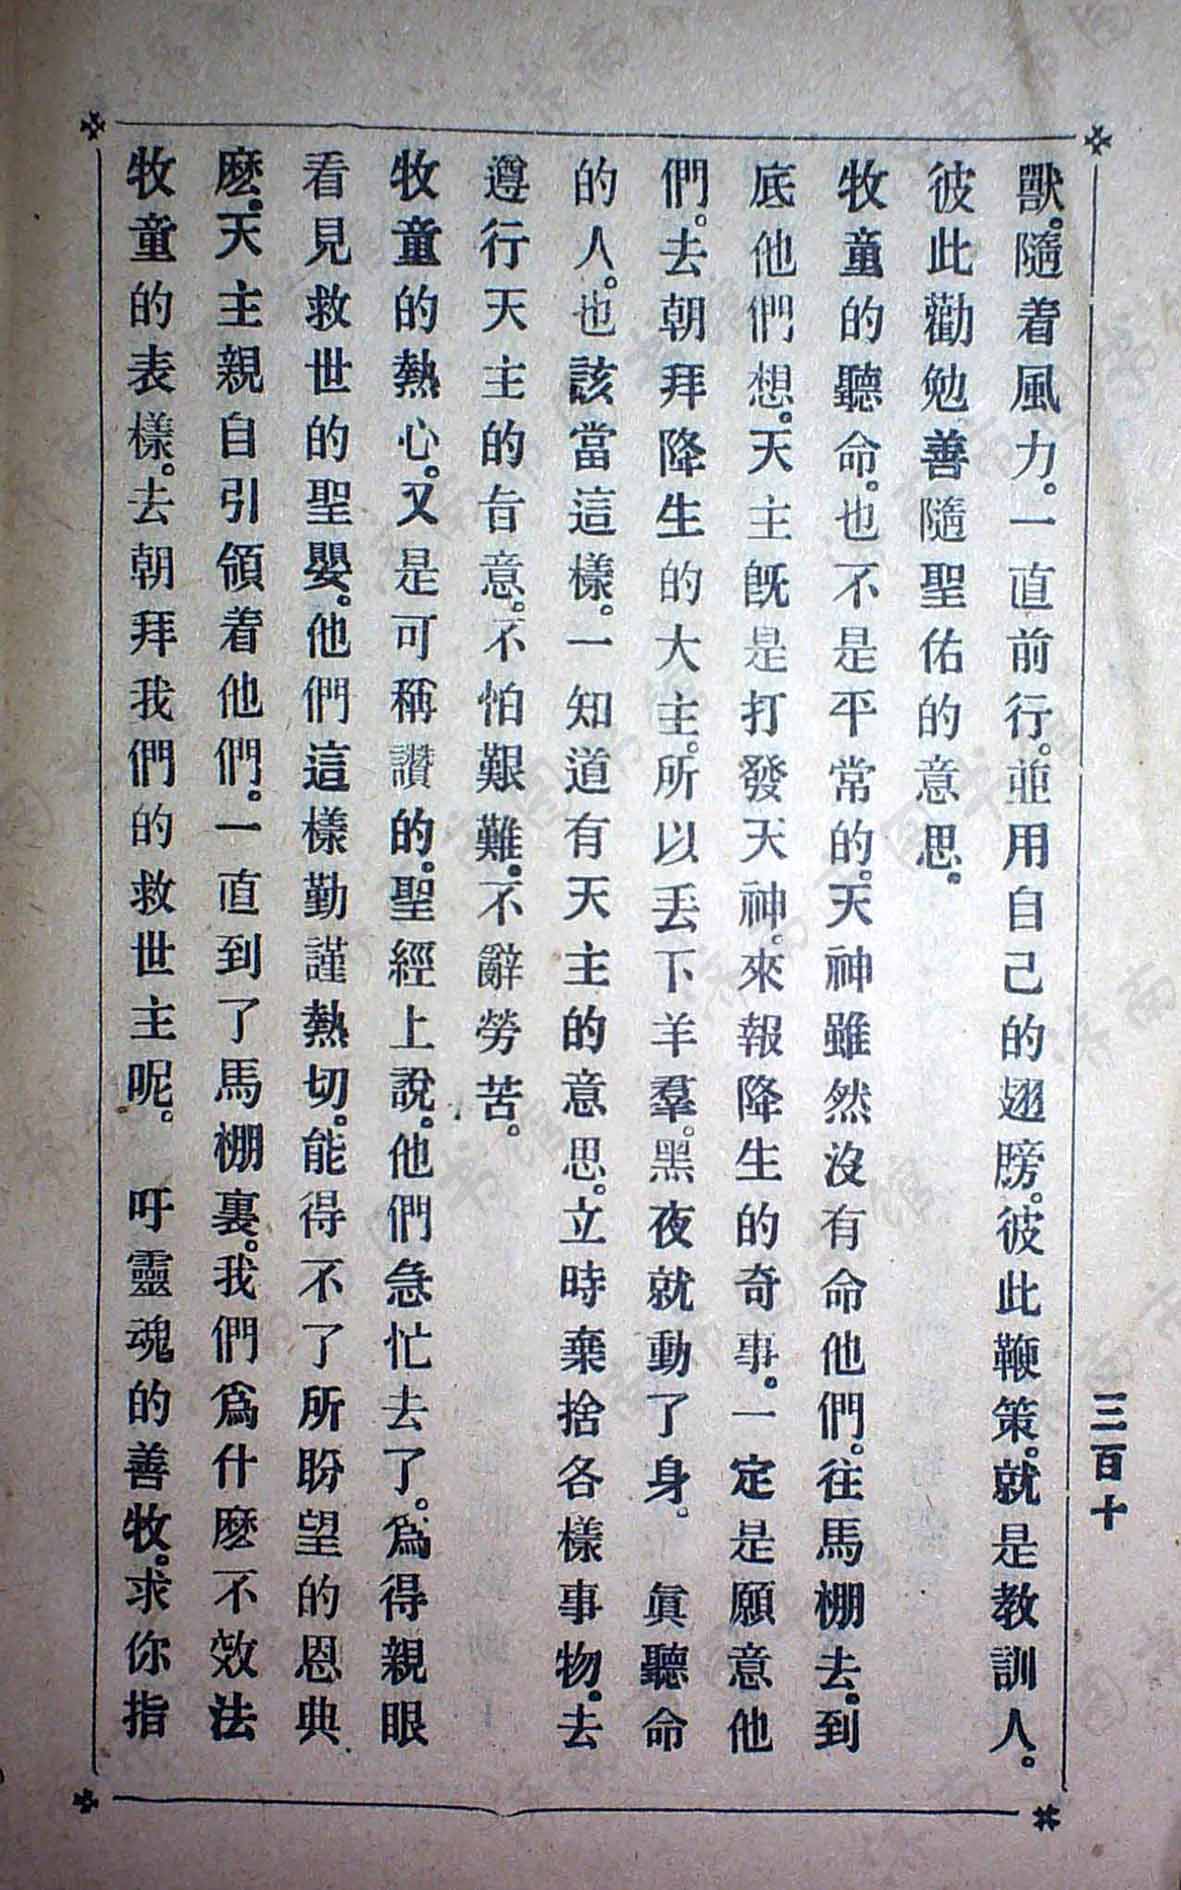 獸。隨着風力。一直前行。並用自己的翅膀。彼此鞭策。就是教訓人。
彼此勸勉善隨聖佑的意思。
牧童的聽命。也不是平常的。天神雖然沒有命他們。往馬棚去。到
底他們想。天主旣是打發天神。來報降生的奇事。一定是願意他
們。去朝拜降生的大主。所以丢下羊羣。黑夜就動了身。 眞聽命
的人。也該當這樣。一知道有天主的意思。立時棄捨各樣事物。去
遵行天主的旨意。不怕艱難。不辭勞苦。
牧童的熱心。又是可稱讚的。聖經上說。他們急忙去了。爲得親眼
看見救世的聖嬰。他們這樣勤謹熱切。能得不了所盼望的恩典
麽。天主親自引領着他們。一直到了馬棚裏。我們爲什麽不效法
牧童的表樣。去朝拜我們的救世主呢。 吁靈魂的善牧。求你指
三百十